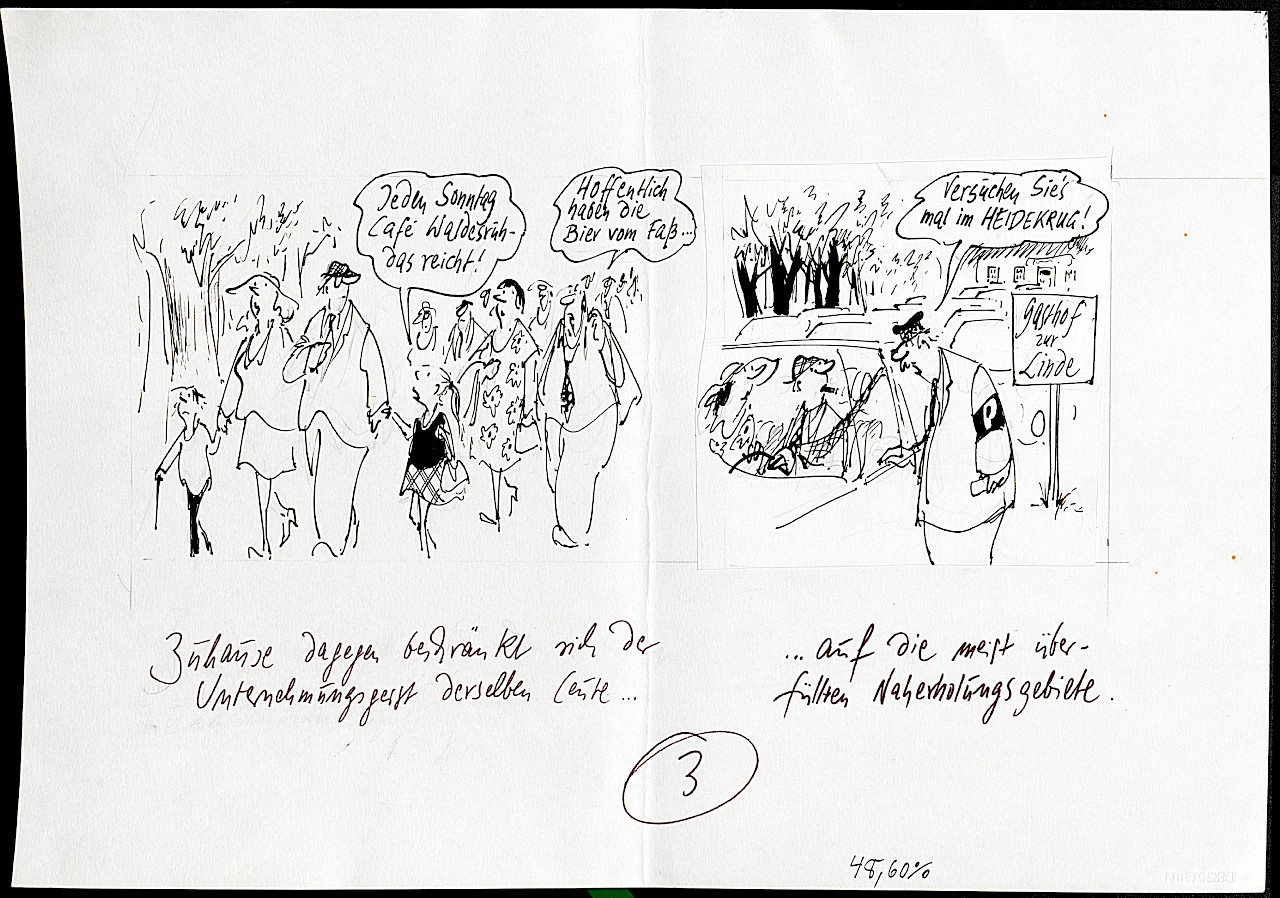 Jeden Sonntag
Café Waldesruh-
das reicht!
Hoffentlich
haben die
Bier vom Faß...
Versuchen Sie's
mal im HEIDEKRUG!
Gasthof
zur
Linde
P
Zuhause dagegen beschränkt sich der
Unternehmungsgeist derselben Leute...
... auf die meist über-
füllten Naherholungsgebiete.
3
48,60%